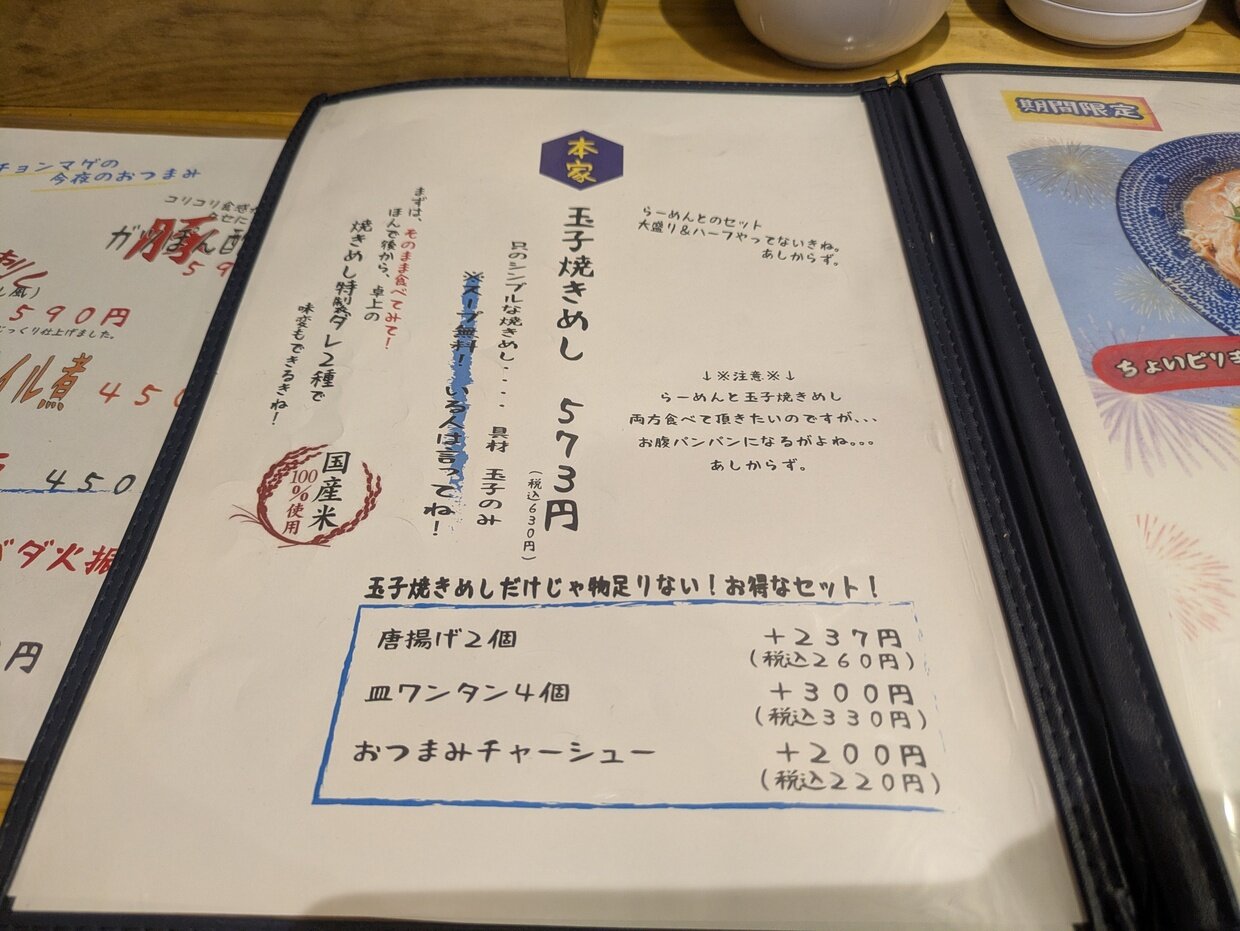 チョンマゲの
今夜のおつまみ
コリコリ食感
５９
５９０円
じっくり仕上げました。
イル煮 ４５０
４５０
円
本家
玉子焼きめし ５７３円
（税込６３０円）
只のシンプルな焼きめし・・・・ 具材 玉子のみ
※スープ無料！ いる人は言ってね！
まずは、そのまま食べてみて！
ほんで後から、卓上の
焼きめし特製ダレ２種で
味変もできるきね！
国産米
100%使用
らーめんとのセット
大盛り＆ハーフやってないきね。
あしからず。
↓※注意※↓
らーめんと玉子焼きめし
両方食べて頂きたいのですが、、、
お腹パンパンになるがよね。。。
あしからず。
玉子焼きめしだけじゃ物足りない！お得なセット！
唐揚げ２個 ＋２３７円
（税込２６０円）
皿ワンタン４個 ＋３００円
（税込３３０円）
おつまみチャーシュー ＋２００円
（税込２２０円）
期間限定
ちょいピリ